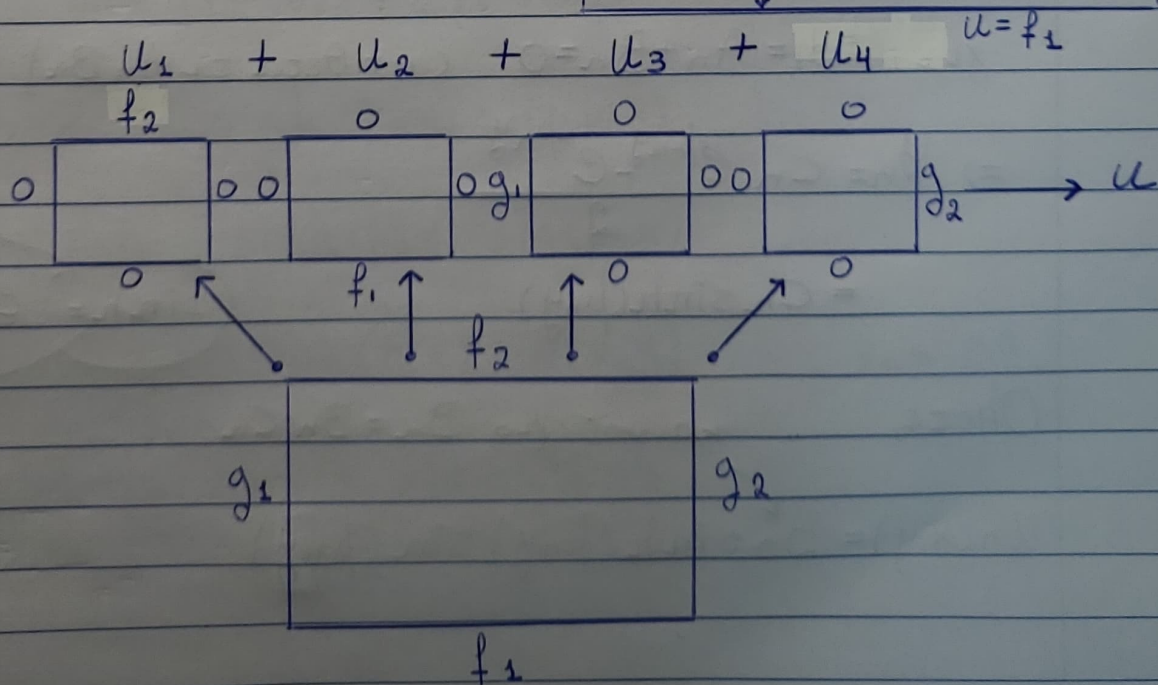 u = f₁
u₁ + u₂ + u₃ + u₄
f₂ 0 0 0
0 0 0 0 g₁ 0 0 g₂ u
0 f₁ 0 0
f₂
g₁ g₂
f₁